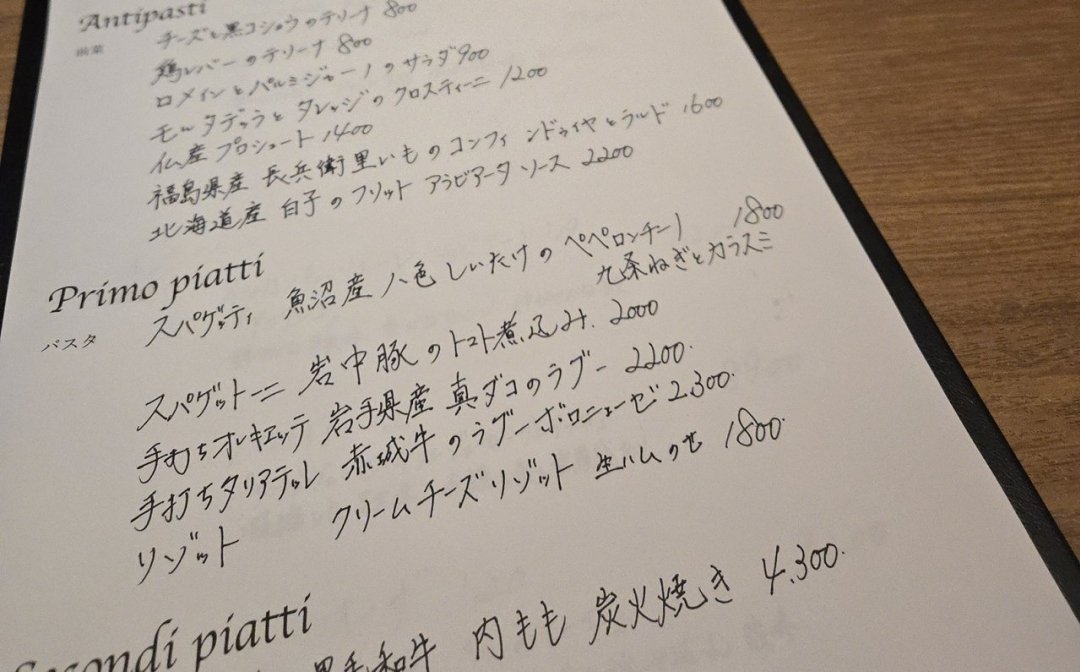 Antipasti
前菜
チーズと黒コショウのテリーナ 800
鶏レバーのテリーナ 800
ロメインとパルミジャーノのサラダ 900
モルタデッラとタレッジのクロスティーニ 1200
仏産プロシュート 1400
福島県産 長兵衛里いものコンフィ ンドゥイヤとラルド 1600
北海道産 白子のフリット アラビアータソース 2200
Primo piatti
パスタ
スパゲッティ 魚沼産八色しいたけのペペロンチーノ 1800
九条ねぎとカラスミ
スパゲットーニ 岩中豚のトマト煮込み. 2000
手打ちオレキエッテ 岩手県産 真ダコのラグー 2200.
手打ちタリアテッレ 赤城牛のラグーボロニェーゼ 2.300.
リゾット クリームチーズリゾット 生ハムのせ 1800.
Secondi piatti
黒毛和牛 内もも 炭火焼き 4.300.